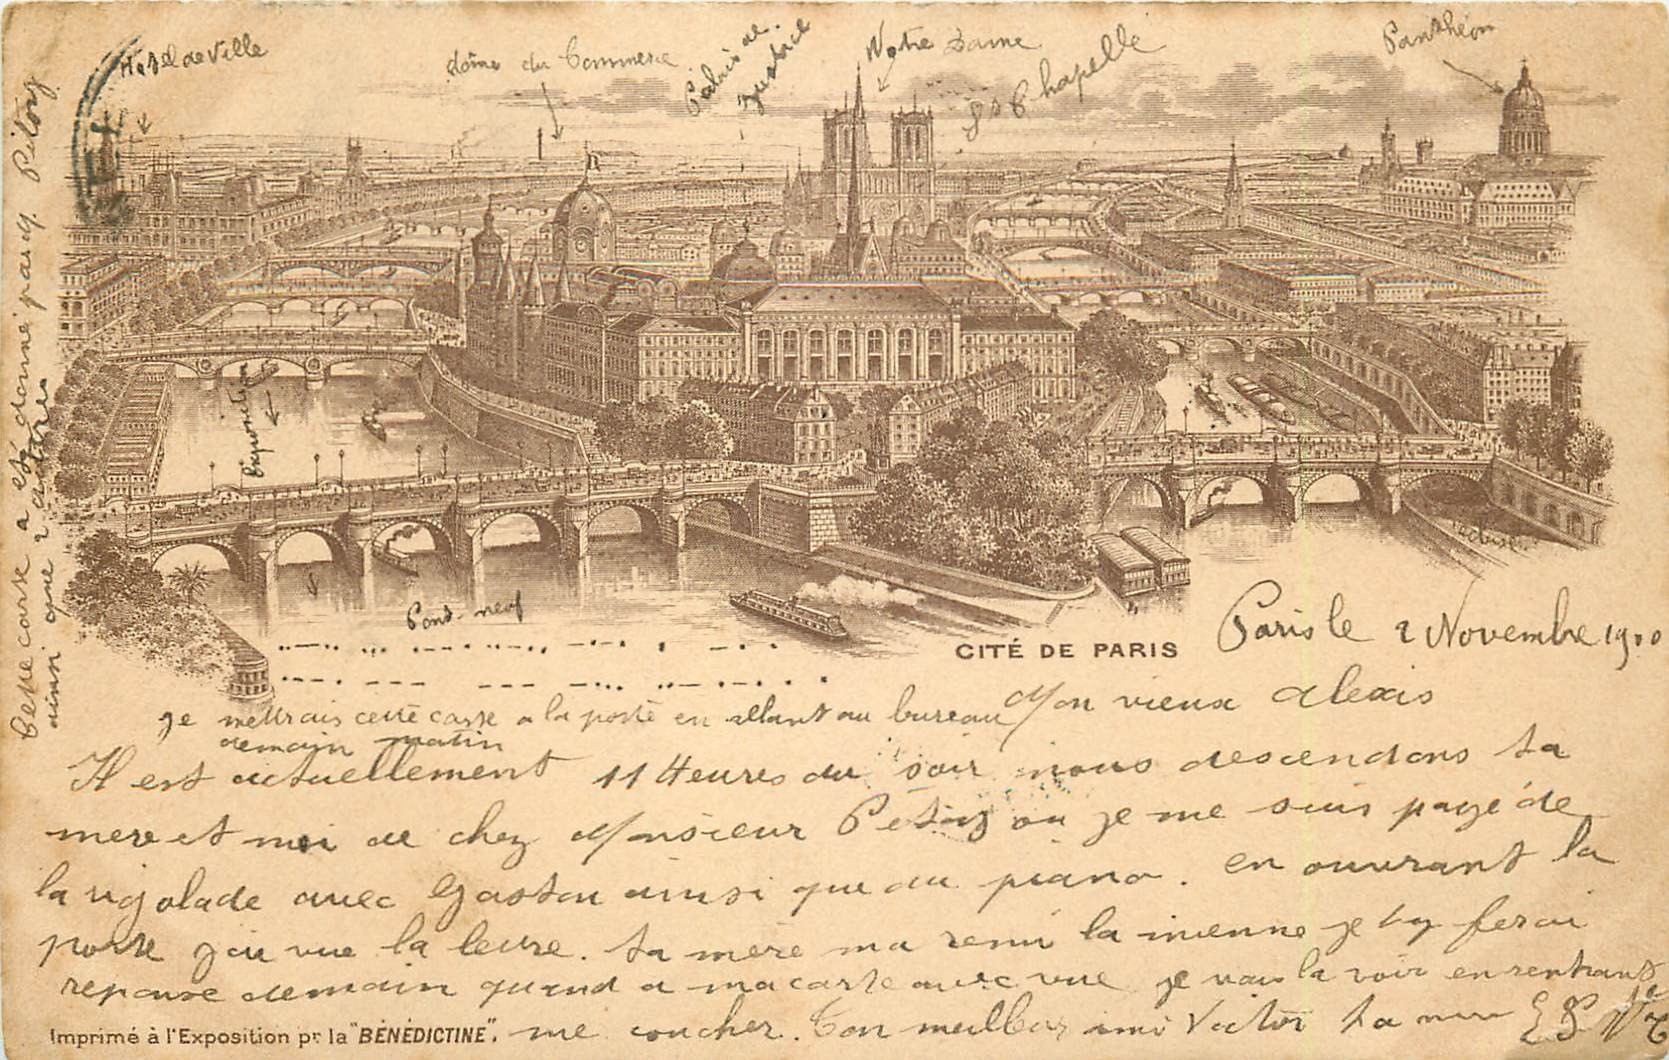 Hotel de Ville
dôme du Commerce
Palais de
Justice
Notre Dame
Ste Chapelle
Panthéon
Cette carte a été donné par Mr Petoz
ainsi que 2 autres
Exposition
Pont-neuf
écluse
·--· --- -· -
CITÉ DE PARIS
Paris le 2 Novembre 1900
Mon vieux Alexis
je mettrais cette carte a la poste en allant au bureau
demain matin
Il est actuellement 11 Heures du soir nous descendons ta
mere et moi de chez Monsieur où je me suis payé de
la rigolade avec Gaston ainsi que du piano. en ouvrant la
porte j'ai vue la leure. ta mère ma remi la mienne je t'y ferai
reponse demain quand a ma carte avec vue je vais la voir en rentrant
Imprimé à l'Exposition pr la "BÉNÉDICTINE".
me coucher. Ton meilleur ami Victor